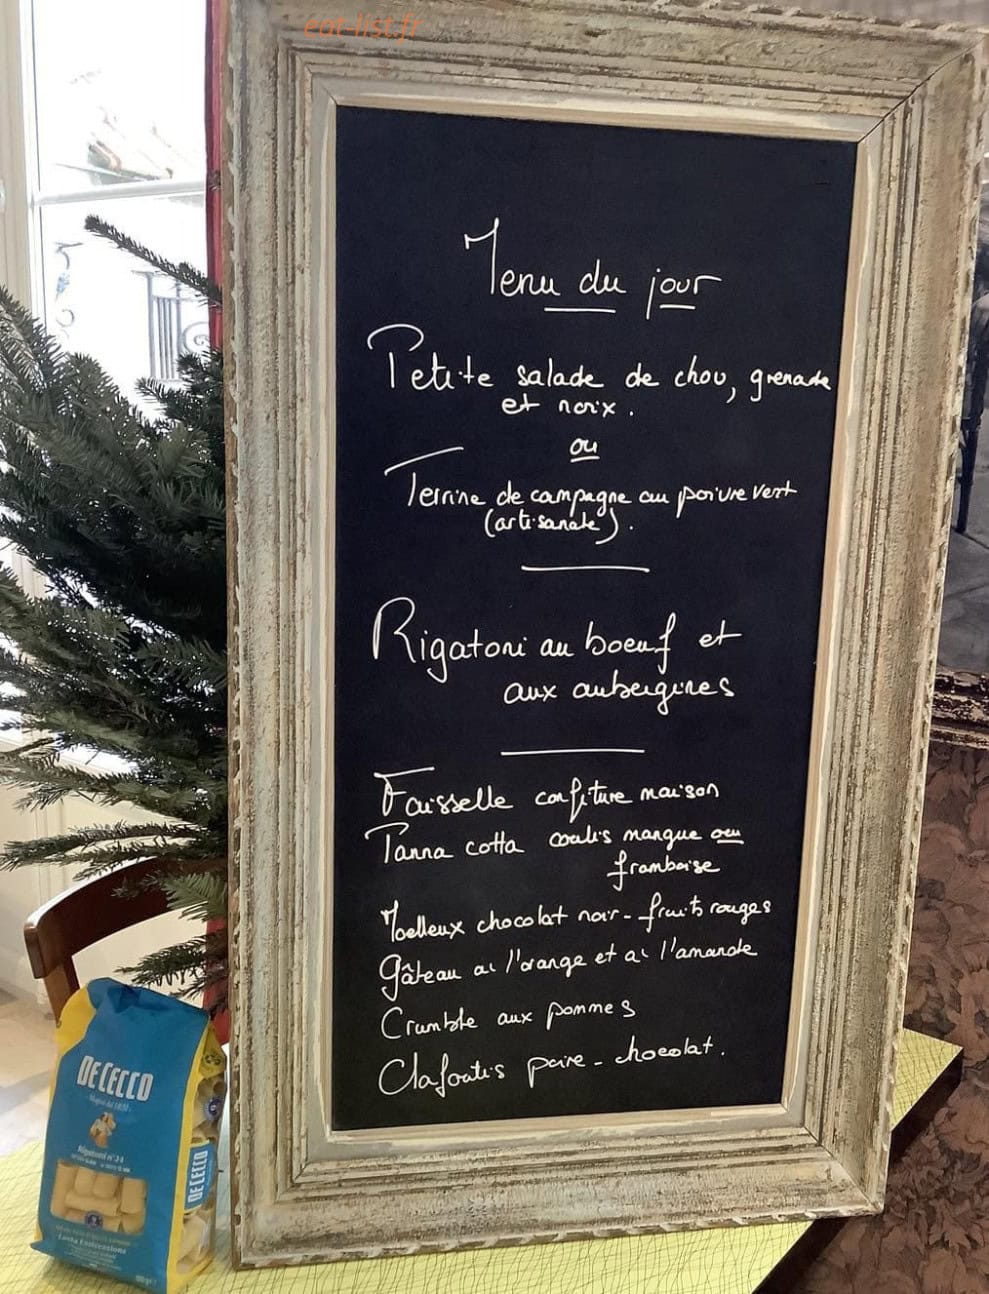 eat-list.fr
Menu du jour
Petite salade de chou, grenade
et noix.
ou
Terrine de campagne au poivre vert
(artisanale).
Rigatoni au boeuf et
aux aubergines
Faisselle confiture maison
Panna cotta coulis mangue ou
framboise
Moelleux chocolat noir - fruits rouges
Gâteau à l'orange et à l'amande
Crumble aux pommes
Clafoutis poire - chocolat.
DE CECCO
Rigatoni n° 24
DE CECCO